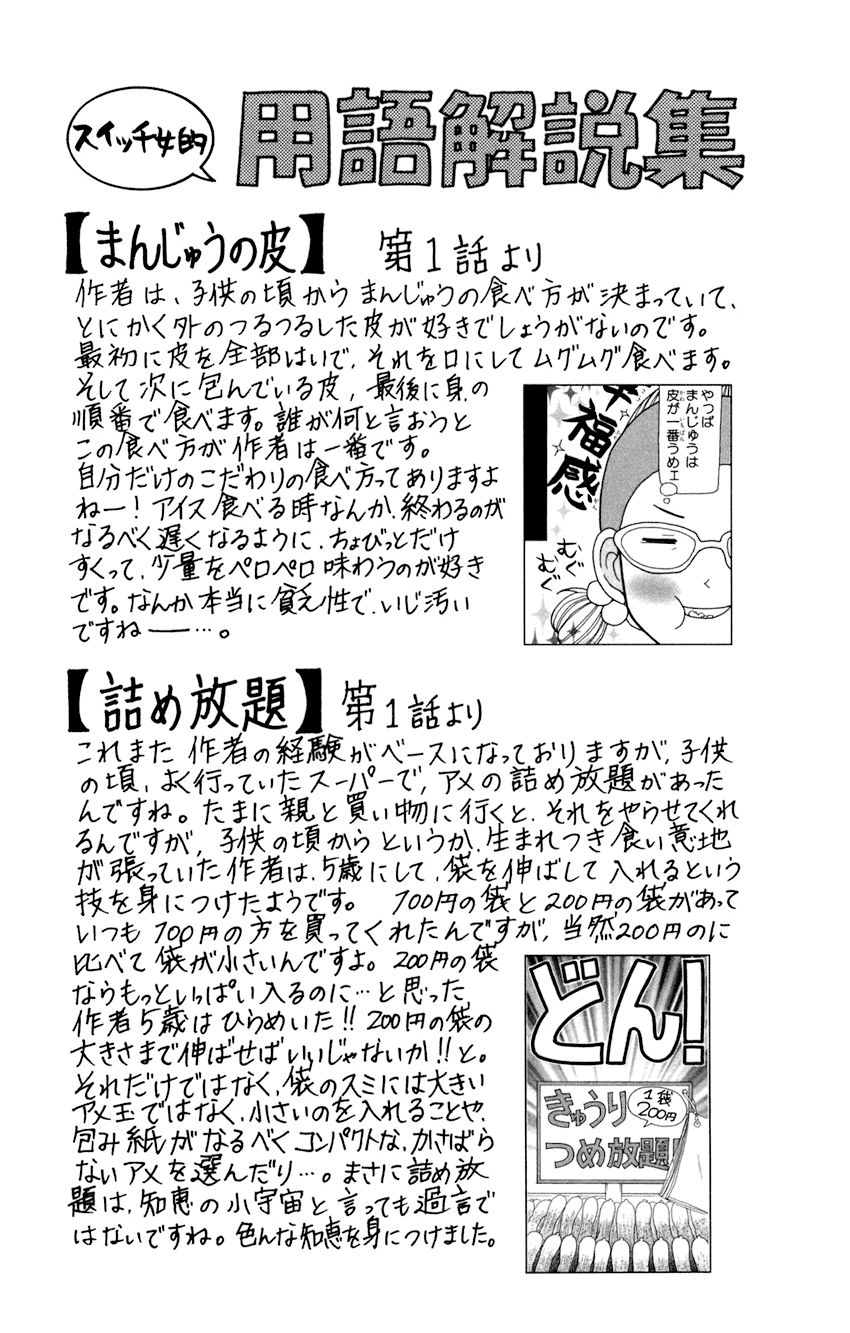 スイッチ女的
用語解説集
【まんじゅうの皮】 第1話より
作者は、子供の頃からまんじゅうの食べ方が決まっていて、
とにかく外のつるつるした皮が好きでしょうがないのです。
最初に皮を全部はいで、それを口にしてムグムグ食べます。
そして次に包んでいる皮、最後に身の
順番で食べます。誰が何と言おうと
この食べ方が作者は一番です。
自分だけのこだわりの食べ方ってありますよ
ねー！アイス食べる時なんか、終わるのが
なるべく遅くなるように、ちょびっとだけ
すくって、少量をペロペロ味わうのが好き
です。なんか本当に貧乏性で、いじ汚い
ですねー…。
やっぱ
まんじゅうは
皮が一番うめェ
福感
むぐ
むぐ
【詰め放題】 第1話より
これまた作者の経験がベースになっておりますが、子供
の頃、よく行っていたスーパーで、アメの詰め放題があった
んですね。たまに親と買い物に行くと、それをやらせてくれ
るんですが、子供の頃からというか、生まれつき食い意地
が張っていた作者は、5歳にして、袋を伸ばして入れるという
技を身につけたようです。 100円の袋と200円の袋があって
いつも100円の方を買ってくれたんですが、当然200円のに
比べて袋が小さいんですよ。200円の袋
ならもっといっぱい入るのに…と思った
作者5歳はひらめいた!!200円の袋の
大きさまで伸ばせばいいじゃないか!!と。
それだけではなく、袋のスミには大きい
アメ玉ではなく、小さいのを入れることや、
包み紙がなるべくコンパクトな、かさばら
ないアメを選んだり…。まさに詰め放
題は、知恵の小宇宙と言っても過言で
はないですね。色んな知恵を身につけました。
どん!
きゅうり
つめ放題!
1袋
200円